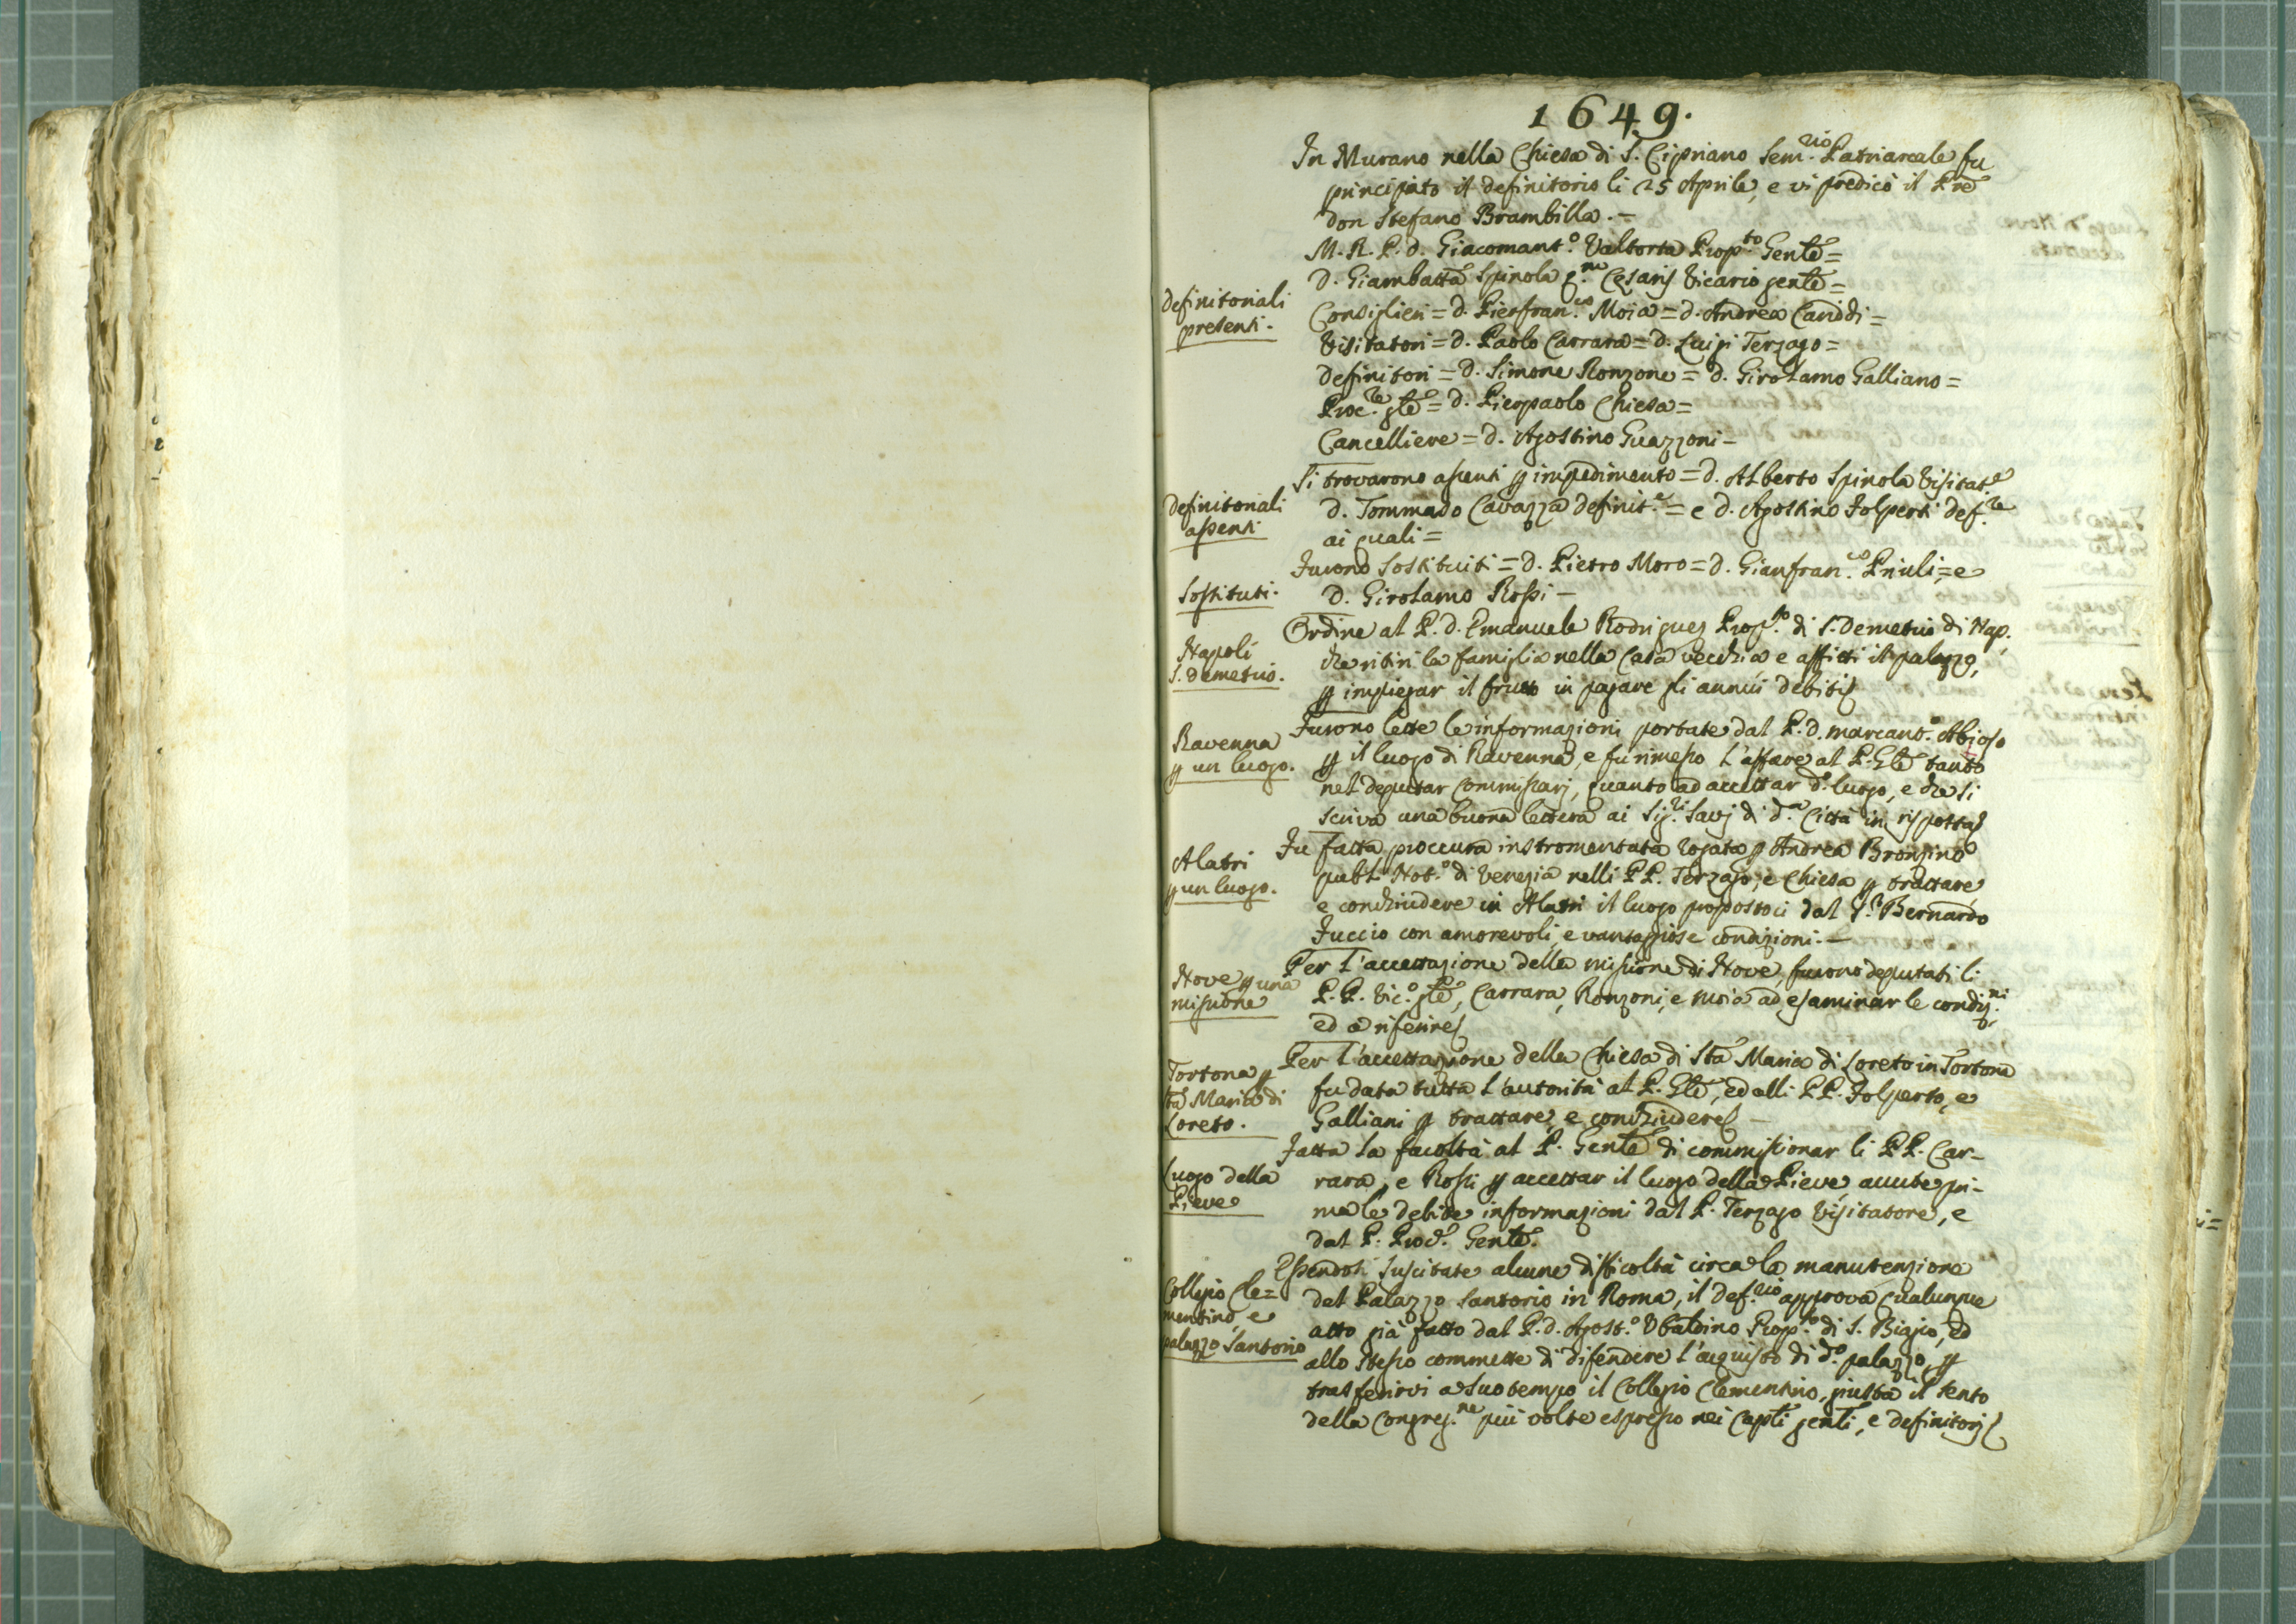 1649.
In Murano nella Chiesa di S. Cipriano Sem.rio Patriarcale fu
principiato il definitorio li 25 Aprile, e vi predicò il Pre
don Stefano Brambilla. -
M. R. P. d. Giacomant.o Valtorta Prop.to Genle =
D. Giambatta Spinola q.m Cesaris Vicario genle =
definitoriali
presenti.
Consiglieri = d. Pierfran.co Moia = d. Andrea Canddi =
Visitatori = d. Paolo Carrara = d. Luigi Terzago =
Definitori = d. Simone Ronzone = d. Girolamo Galliano =
Proc.re gle = d. Pierpaolo Chiesa =
Cancelliere = d. Agostino Guazzoni -
definitoriali
assenti
Si trovarono assenti p impedimento = d. Alberto Spinola Visitat.e
d. Tommaso Cavazza definit.e = e d. Agostino Folperti def.re
ai quali =
Sostituti.
Furono Sostituiti = d. Pietro Moro = d. Gianfran.co Priuli = e
d. Girolamo Rossi -
Napoli
S. demetrio.
Ordine al P. d. Emanuele Rodriguez Prop.to di S. Demetrio di Nap.
che ritiri la famiglia nella Casa vecchia e affitti il palazzo,
p impiegar il frutto in pagare gli annui debiti
Ravenna
p un luogo.
Furono lette le informazioni portate dal P. d. marcant.o Abioso
p il luogo di Ravenna, e fu rimesso l'affare al P. Gle tanto
nel deputar Commissarj, quanto ad accettar d.o luogo, e che si
scriva una buona lettera ai Sig.ri Savj di d.a Città in risposta
Alatri
p un luogo.
Fu fatta proccura instromentata rogata p Andrea Bronzino
publ. Not.o di Venezia nelli PP. Terzago, e Chiesa p trattare
e conchiudere in Alatri il luogo propostoci dal S.r Bernardo
Juccio con amorevoli, e vantaggiose condizioni. -
Nove p una
missione
Per l'accettazione della missione di Nove, furono deputati li
P. P. Vic.o gle, Carrara, Ronzoni, e Moia ad esaminar le condiz.ni
ed a riferire
Tortona p
Sta Maria di
Loreto.
Per l'accettazione della Chiesa di Sta Maria di Loreto in Tortona
fu data tutta l'autorità al P. Gle, ed alli PP. Folperto, e
Galliani p trattare, e conchiudere -
Luogo della
Pieve
Fatta la facoltà al P. Genle di commissionar li PP. Car-
rara, e Rossi p accettar il luogo della Pieve avute pri-
ma le debite informazioni dal P. Terzago Visitatore, e
dal P. Proc.e Genle.
Collegio Cle=
mentino, e
palazzo Santorio
Essendosi suscitate alcune difficoltà circa la manutenzione
del Palazzo Santorio in Roma, il def.rio approva qualunque
atto già fatto dal P. d. Agost.o Ubaldino Prop.to di S. Biagio, ed
allo stesso commette di difendere l'acquisto di d.o palazzo, p
trasferirvi a Suo tempo il Collegio Clementino, giusta il sento
della Congreg.ne più volte espresso nei Capli genli, e definitorj